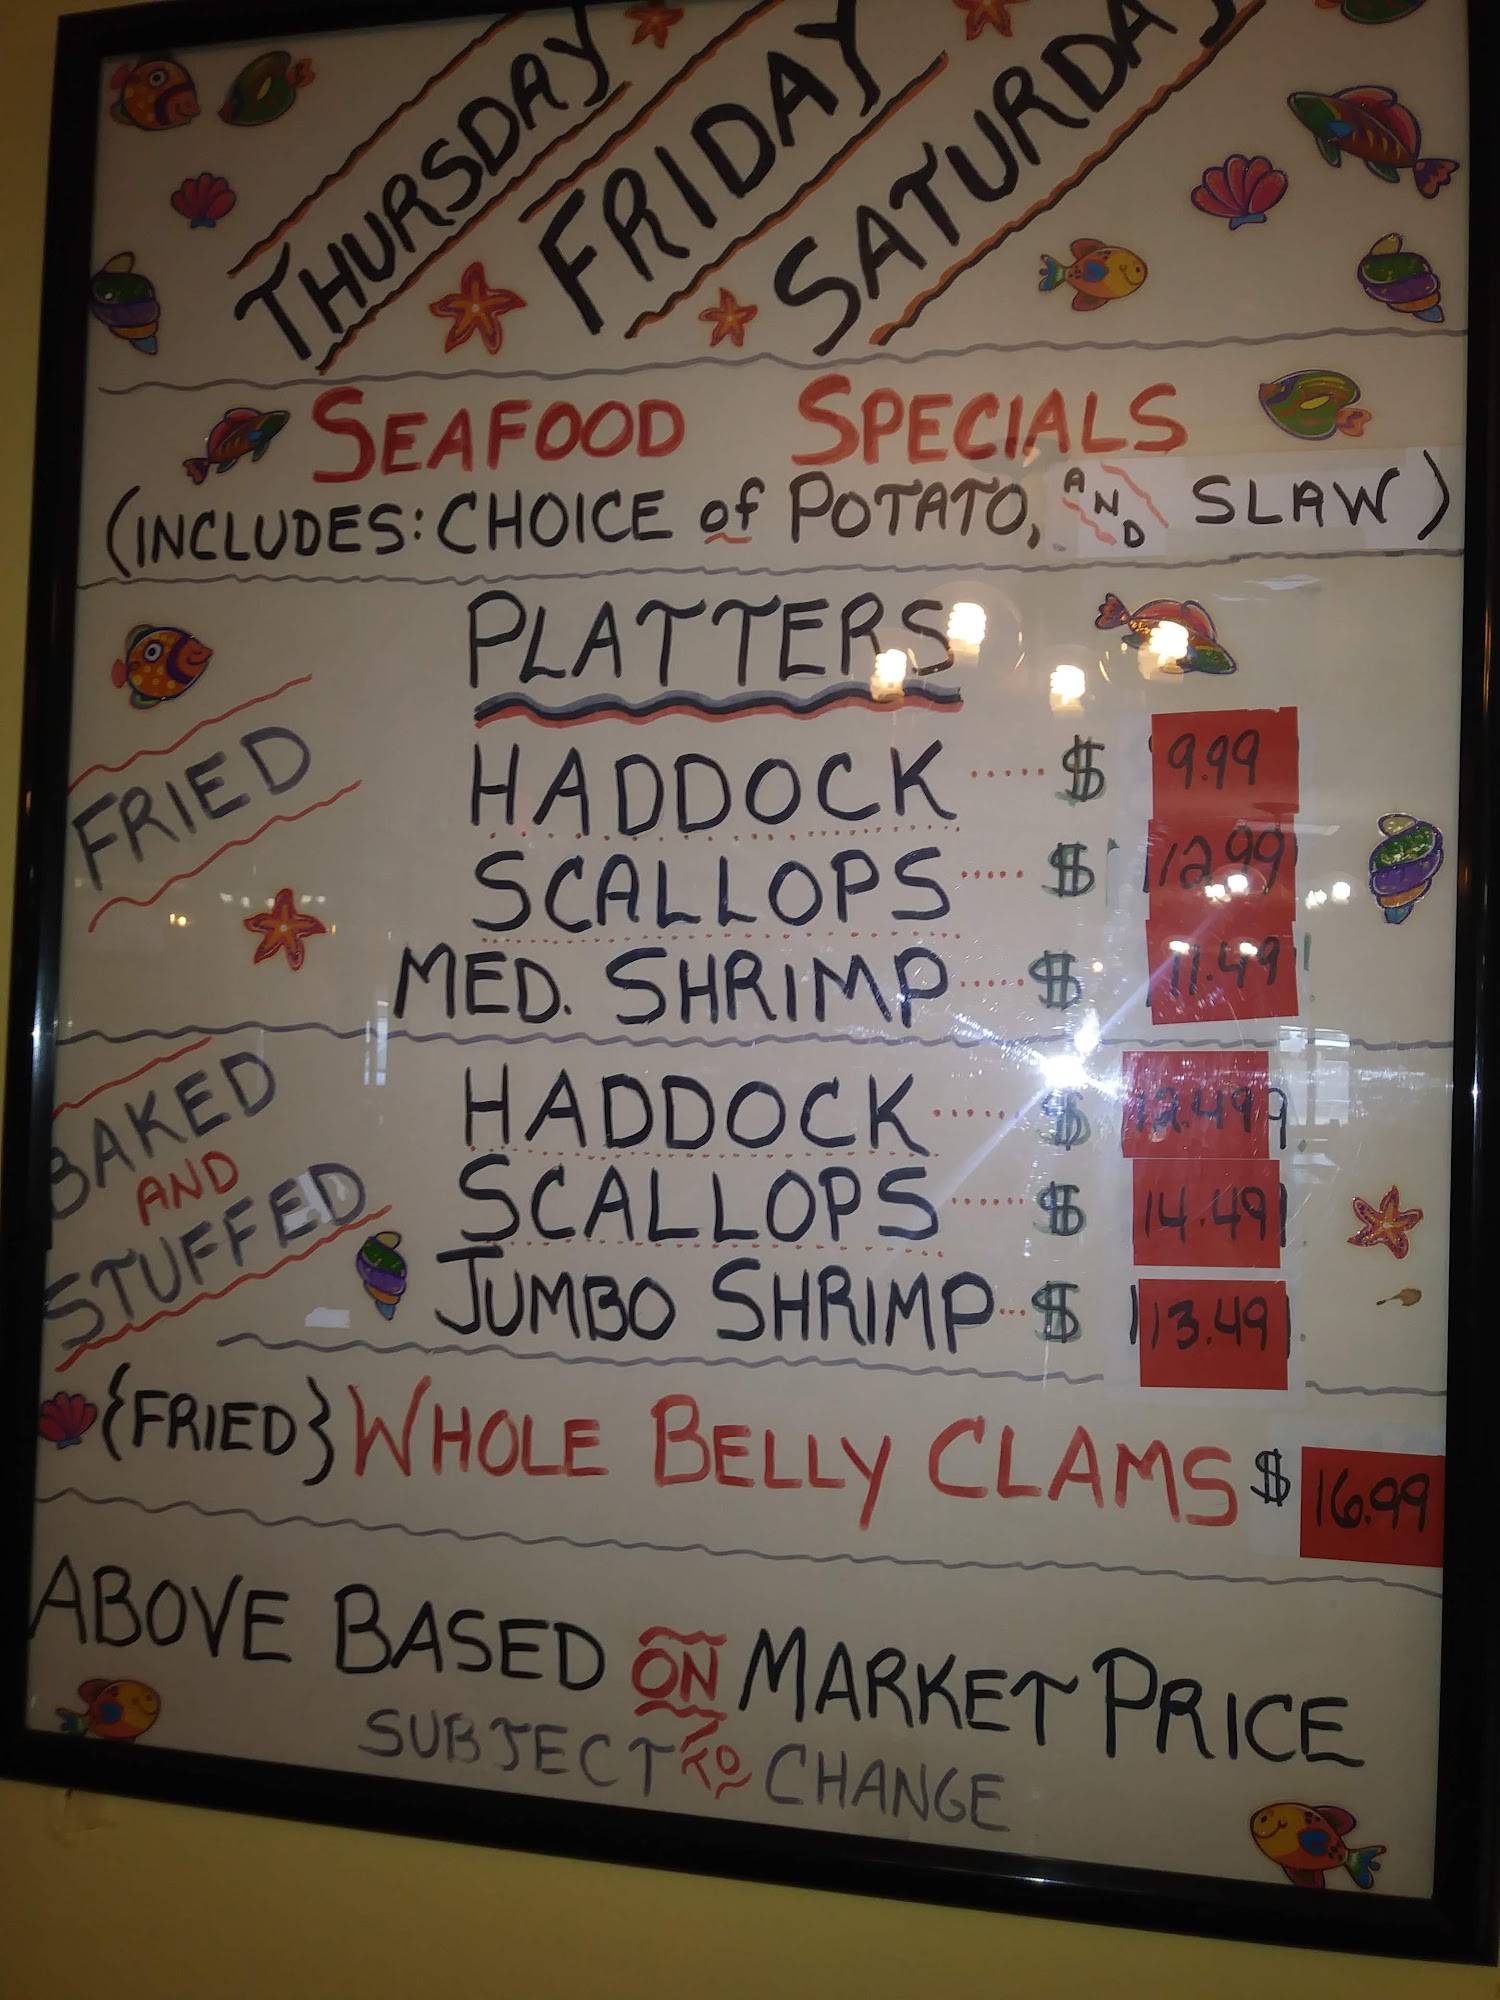 THURSDAY
FRIDAY
SATURDAY
SEAFOOD SPECIALS
(INCLUDES: CHOICE of POTATO, AND SLAW)
PLATTERS
FRIED
HADDOCK ..... $ 9.99
SCALLOPS ..... $ 12.99
MED. SHRIMP ..... $ 11.49
BAKED AND STUFFED
HADDOCK ..... $ 12.49
SCALLOPS ..... $ 14.49
JUMBO SHRIMP ... $ 13.49
{FRIED} WHOLE BELLY CLAMS $ 16.99
ABOVE BASED ON MARKET PRICE
SUBJECT TO CHANGE